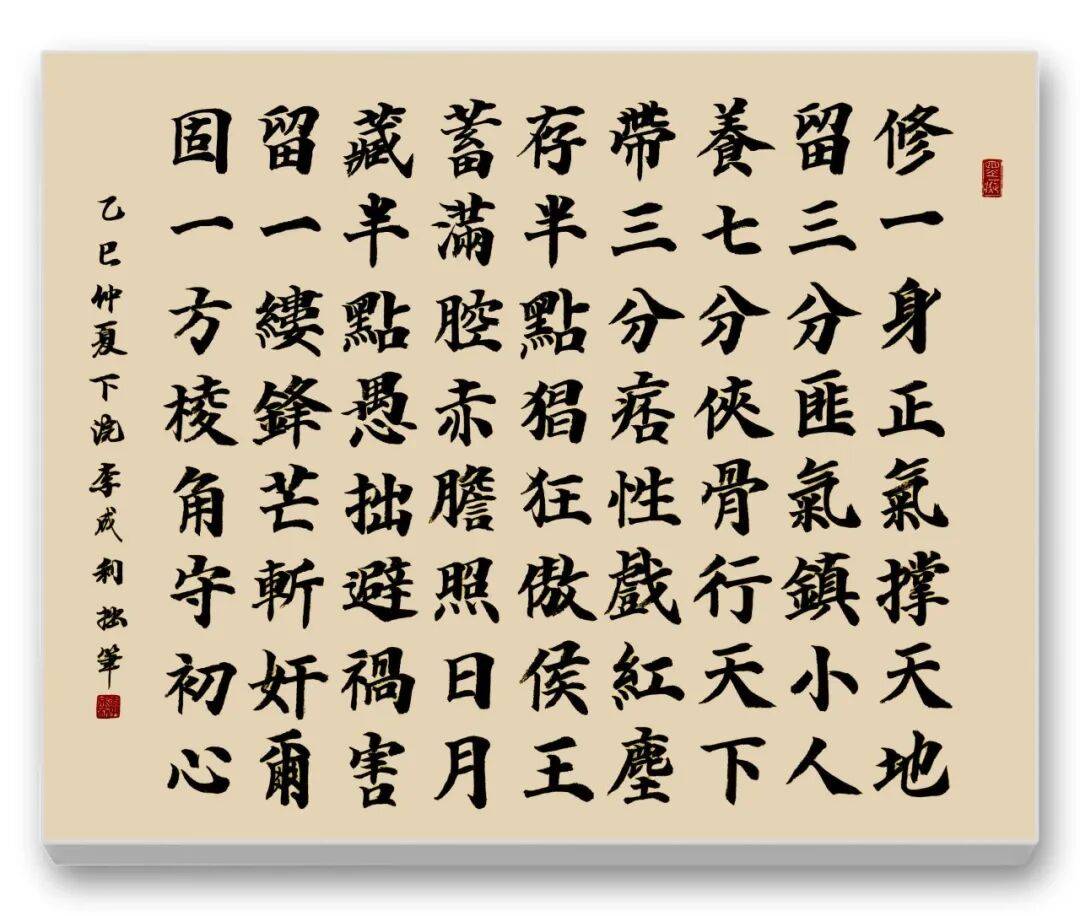 修一身正氣撑天地
留三分匪氣鎮小人
養七分俠骨行天下
帶三分痞性戲紅塵
存半點猖狂傲侯王
蓄滿腔赤膽照日月
藏半點愚拙避禍害
留一縷鋒芒斬奸爾
固一方棱角守初心
乙巳仲夏下浣李成利拙筆